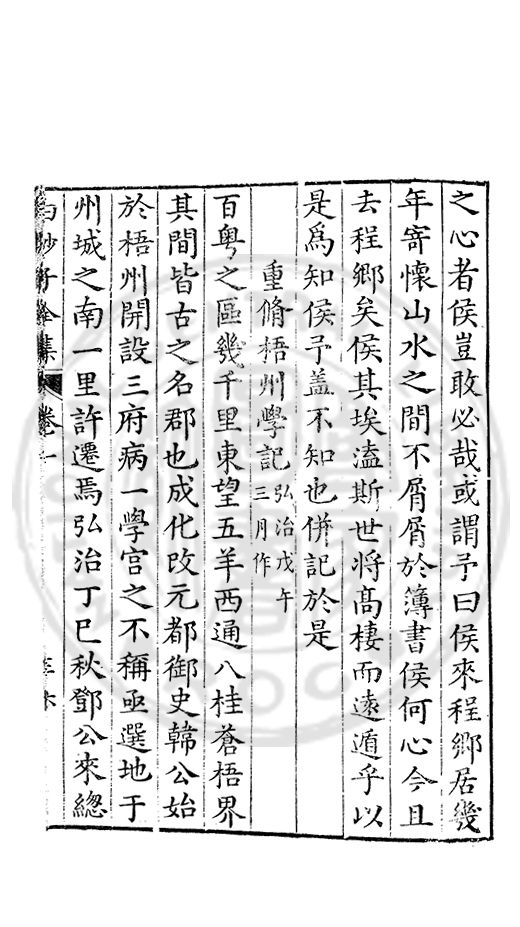 之心者侯豈敢必哉或謂予曰侯來程鄉居幾
年寄懷山水之間不屑屑於簿書侯何心今且
去程鄉矣侯其埃溘斯世將高棲而遠遁乎以
是爲知侯予蓋不知也併記於是
重脩梧州學記弘治戊午三月作
百粵之區幾千里東望五羊西通八桂蒼梧界
其間皆古之名郡也成化改元都御史韓公始
於梧州開設三府病一學宮之不稱亟選地于
州城之南一里許遷焉弘治丁巳秋鄧公來總
白沙子全集 卷一